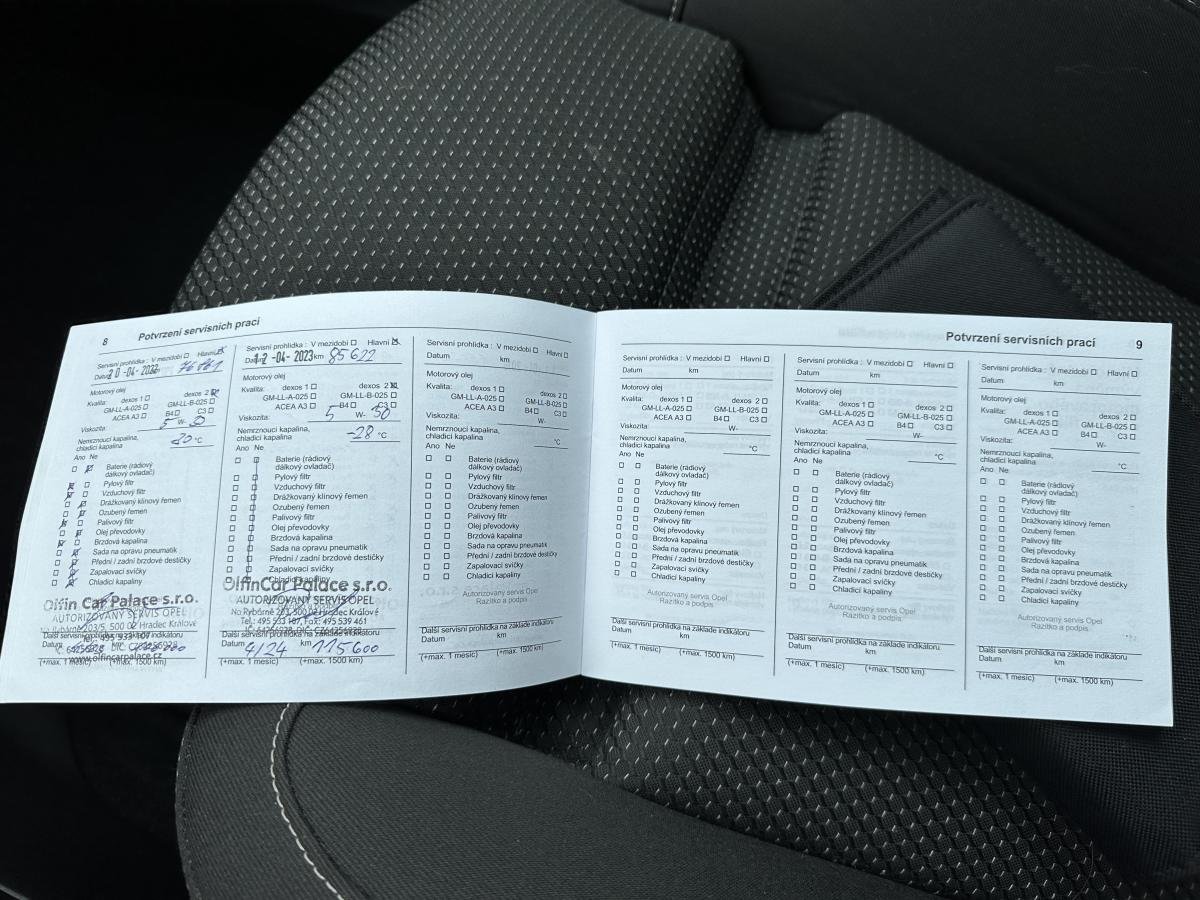 8 Potvrzení servisních prací
Servisní prohlídka : V mezidobí Hlavní
Datum 20 -04- 2022
Motorový olej
Kvalita: dexos 1 dexos 2
GM-LL-A-025 GM-LL-B-025
ACEA A3 B4 C3
Viskozita: 5 W- 30
Nemrznoucí kapalina,
chladicí kapalina °C
Ano Ne
Baterie (rádiový
dálkový ovladač)
Pylový filtr
Vzduchový filtr
Drážkovaný klínový řemen
Ozubený řemen
Palivový filtr
Olej převodovky
Brzdová kapalina
Sada na opravu pneumatik
Přední / zadní brzdové destičky
Zapalovací svíčky
Chladicí kapaliny
Olfin Car Palace s.r.o.
AUTORIZOVANÝ SERVIS OPEL
Na Rybárně 203/5, 500 02 Hradec Králové
Tel.: 495 533 107
Další servisní prohlídka na základě indikátoru
Datum
www.olfincarpalace.cz
(+max. 1 měsíc) (+max. 1500 km)
Servisní prohlídka : V mezidobí Hlavní
Datum 12 -04- 2023 km 85622
Motorový olej
Kvalita: dexos 1 dexos 2
GM-LL-A-025 GM-LL-B-025
ACEA A3 B4 C3
Viskozita: 5 W- 30
Nemrznoucí kapalina,
chladicí kapalina -28 °C
Ano Ne
Baterie (rádiový
dálkový ovladač)
Pylový filtr
Vzduchový filtr
Drážkovaný klínový řemen
Ozubený řemen
Palivový filtr
Olej převodovky
Brzdová kapalina
Sada na opravu pneumatik
Přední / zadní brzdové destičky
Zapalovací svíčky
Chladicí kapaliny
OlfinCar Palace s.r.o.
AUTORIZOVANÝ SERVIS OPEL
Na Rybárně 273, 500 02 Hradec Králové
Tel.: 495 533 107, Fax: 495 539 461
Další servisní prohlídka na základě indikátoru
Datum 4/24 km 115600
(+max. 1 měsíc) (+max. 1500 km)
Servisní prohlídka : V mezidobí Hlavní
Datum km
Motorový olej
Kvalita: dexos 1 dexos 2
GM-LL-A-025 GM-LL-B-025
ACEA A3 B4 C3
Viskozita: W-
Nemrznoucí kapalina,
chladicí kapalina °C
Ano Ne
Baterie (rádiový
dálkový ovladač)
Pylový filtr
Vzduchový filtr
Drážkovaný klínový řemen
Ozubený řemen
Palivový filtr
Olej převodovky
Brzdová kapalina
Sada na opravu pneumatik
Přední / zadní brzdové destičky
Zapalovací svíčky
Chladicí kapaliny
Autorizovaný servis Opel
Razítko a podpis
Další servisní prohlídka na základě indikátoru
Datum km
(+max. 1 měsíc) (+max. 1500 km)
Potvrzení servisních prací 9
Servisní prohlídka : V mezidobí Hlavní
Datum km
Motorový olej
Kvalita: dexos 1 dexos 2
GM-LL-A-025 GM-LL-B-025
ACEA A3 B4 C3
Viskozita: W-
Nemrznoucí kapalina,
chladicí kapalina °C
Ano Ne
Baterie (rádiový
dálkový ovladač)
Pylový filtr
Vzduchový filtr
Drážkovaný klínový řemen
Ozubený řemen
Palivový filtr
Olej převodovky
Brzdová kapalina
Sada na opravu pneumatik
Přední / zadní brzdové destičky
Zapalovací svíčky
Chladicí kapaliny
Autorizovaný servis Opel
Razítko a podpis
Další servisní prohlídka na základě indikátoru
Datum km
(+max. 1 měsíc) (+max. 1500 km)
Servisní prohlídka : V mezidobí Hlavní
Datum km
Motorový olej
Kvalita: dexos 1 dexos 2
GM-LL-A-025 GM-LL-B-025
ACEA A3 B4 C3
Viskozita: W-
Nemrznoucí kapalina,
chladicí kapalina °C
Ano Ne
Baterie (rádiový
dálkový ovladač)
Pylový filtr
Vzduchový filtr
Drážkovaný klínový řemen
Ozubený řemen
Palivový filtr
Olej převodovky
Brzdová kapalina
Sada na opravu pneumatik
Přední / zadní brzdové destičky
Zapalovací svíčky
Chladicí kapaliny
Autorizovaný servis Opel
Razítko a podpis
Další servisní prohlídka na základě indikátoru
Datum km
(+max. 1 měsíc) (+max. 1500 km)
Servisní prohlídka : V mezidobí Hlavní
Datum km
Motorový olej
Kvalita: dexos 1 dexos 2
GM-LL-A-025 GM-LL-B-025
ACEA A3 B4 C3
Viskozita: W-
Nemrznoucí kapalina,
chladicí kapalina °C
Ano Ne
Baterie (rádiový
dálkový ovladač)
Pylový filtr
Vzduchový filtr
Drážkovaný klínový řemen
Ozubený řemen
Palivový filtr
Olej převodovky
Brzdová kapalina
Sada na opravu pneumatik
Přední / zadní brzdové destičky
Zapalovací svíčky
Chladicí kapaliny
Autorizovaný servis Opel
Razítko a podpis
Další servisní prohlídka na základě indikátoru
Datum km
(+max. 1 měsíc) (+max. 1500 km)